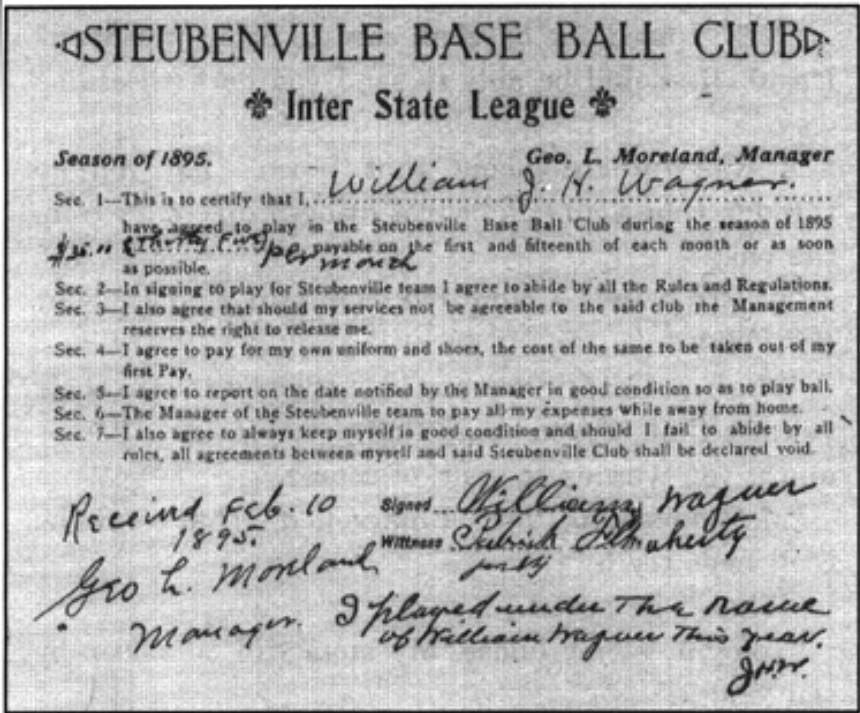 STEUBENVILLE BASE BALL CLUB
Inter State League
Season of 1895. Geo. L. Moreland, Manager
Sec. 1—This is to certify that I, William J. H. Wagner.
have agreed to play in the Steubenville Base Ball Club during the season of 1895
(Thirty Five) per month payable on the first and fifteenth of each month or as soon
as possible.
Sec. 2—In signing to play for Steubenville team I agree to abide by all the Rules and Regulations.
Sec. 3—I also agree that should my services not be agreeable to the said club the Management
reserves the right to release me.
Sec. 4—I agree to pay for my own uniform and shoes, the cost of the same to be taken out of my
first Pay.
Sec. 5—I agree to report on the date notified by the Manager in good condition so as to play ball.
Sec. 6—The Manager of the Steubenville team to pay all my expenses while away from home.
Sec. 7—I also agree to always keep myself in good condition and should I fail to abide by all
rules, all agreements between myself and said Steubenville Club shall be declared void.
Received Feb. 10
1895.
Geo L. Moreland
Manager.
Signed William Wagner
Wittness Patrick Flaherty
I played under the name
of William Wagner this year.
J.H.W.